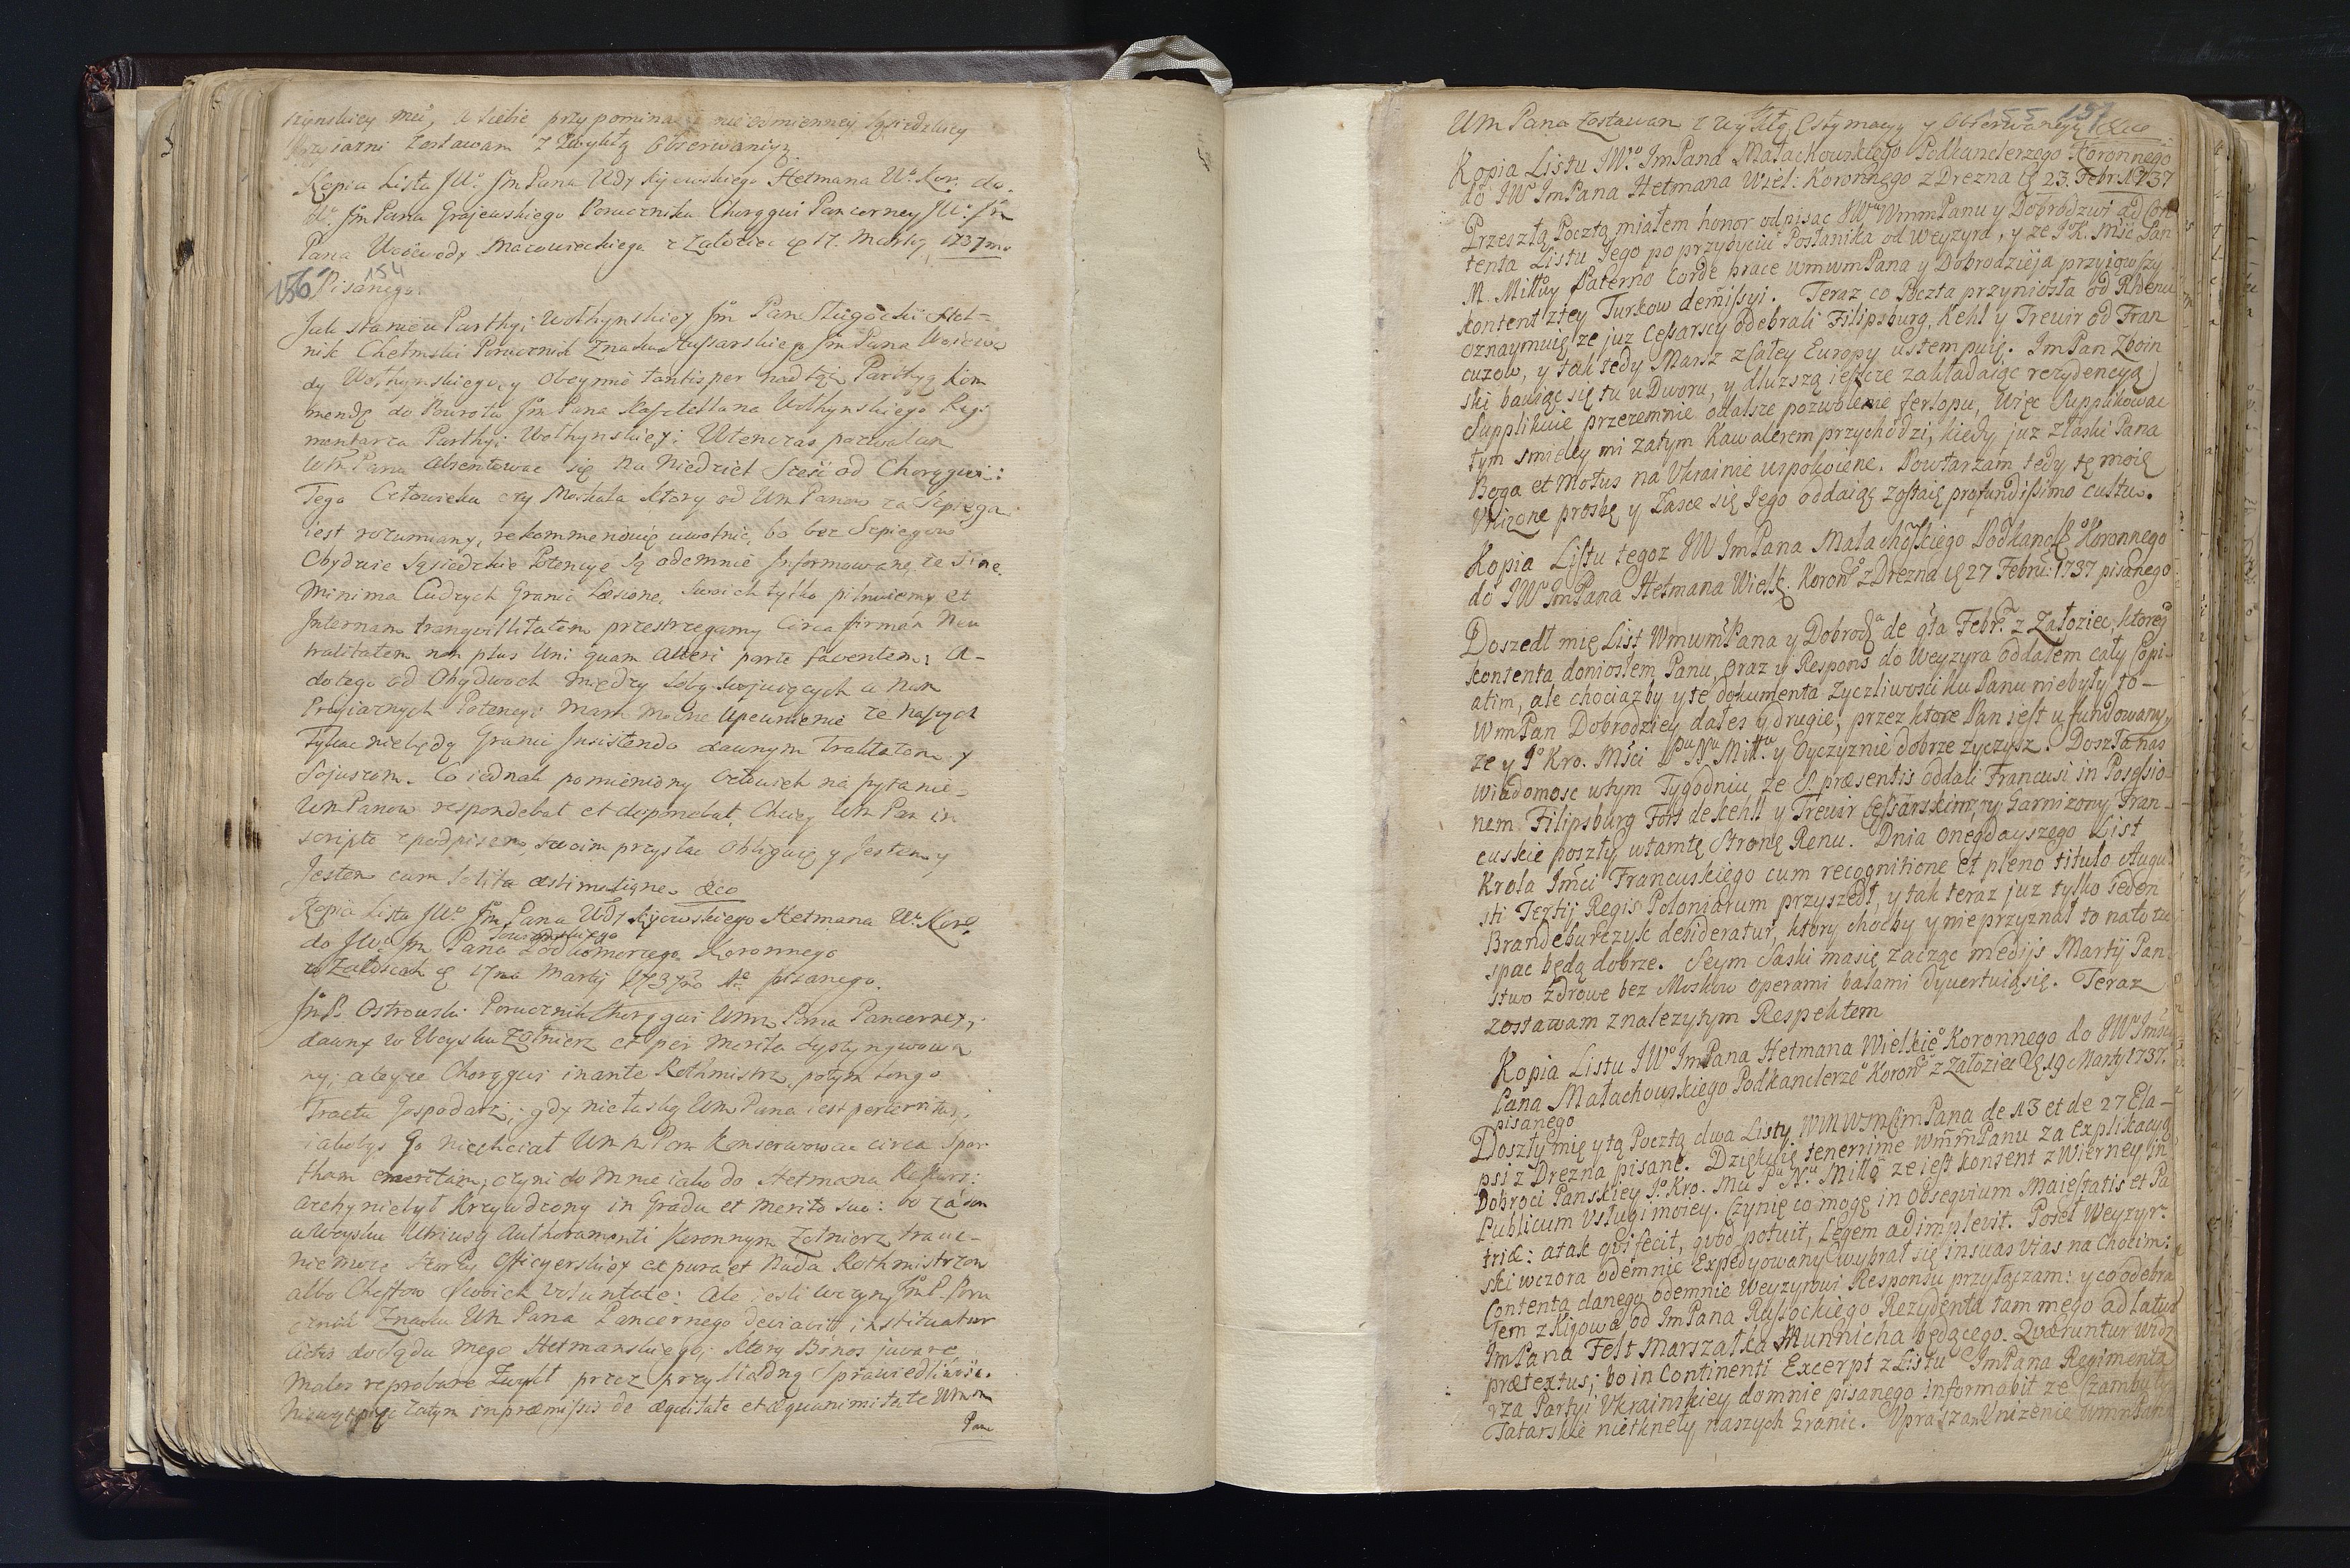 szynskiey mu, a siebie przypominaiąc nieodmienney Sąsiedzkiey
Przyiazni Zostawam z Zwykłą Obserwancyą
Kopia Listu JWo JmPana Wdy Kijowskiego Hetmana Wo Kor. do
Wo JmPana Grajewskiego Porucznika Chorągwi Pancerney JWo Jm
Pana Woiewody Mazowieckiego z Załoziec d 17. Martij, 1737mo
156 154
Pisanego.
Jak stanie u Parthyi Wołhynskiey Jm Pan Sługocki Stol-
nik Chełmski Porucznik Znaku Hussarskiego JmPana Woiewo
dy Wołhynskiego, y obeymie tantisper nad tą Parthyą Kom
mendę do Powrotu JmPana Kasztellana Wołhynskiego Regi
mentarza Parthyi Wołhynskiey: Wtenczas pozwalam
WmPanu absentować się na Niedziel Sześć od Chorągwi:
Tego Człowieka czy Moskala ktory od WmPanow za Szpiega
iest rozumiany, rekommenduię uwolnic, bo bez Szpiegow
Obydwie Sąsiedzkie Potencye są odemnie Jnformowane, ze Sine
Minima Cudzych Granic Læsione, Swoich tylko pilnuiemy et
Jnternam tranquillitatem przestrzegamy Circa firmam Neu
tralitatem non plus Uni quam Alteri parte faventem; a-
do tego od Obydwoch między Sobą woiuiących a Nam
Przyiaznych Potencyi mam mocne Upewnienie ze naszych
Tykac niebędą Granic Jnsistendo dawnym Traktatom y
Sojuszom. Co iednak pomieniony Człowiek na pytanie
WmPanow respondebat et deponebat, Chciey WmPan in
scripto z podpisem, swoim przysłac Obliguię y Jestem y
Jestem cum solita æstimatione &co
Kopia Listu JWo JmPana Wdy Kijowskiego Hetmana Wo Kor.
do JWo Jm Pana Podkomorzego Koronnego
w Załoscach d 17ma Martij 1737mo Ao pisanego.
JmP. Ostrowski Porucznik Chorągwi Wmm Pana Pancerney,
dawny w Woysku Zołnierz et per merita dystyngwowa
ny; a tey ze Chorągwi in ante Rothmistrz, potym longo
Tractu Gospodarz; gdy niełaską WmPana iest perterritus,
iakobys Go niechciał WmmPan konserwowac circa Spar
tham emeritam, czyni do Mnie iako do Hetmana Rekurs:
azeby niebył Krzywdzony in Gradu et merito Suo: bo zaden
w Woysku Utriusq Authoramenti Koronnym Zołnierz trac-
nie moze Szarży Officyerskiey ex pura et Nuda Rothmistrzow
albo Cheffow Swoich Voluntate: Ale iesli w czym JmP. Poru
cznik Znaku WmPana Pancernego deviavit instituatur
Actio do Sądu mego Hetmanskiego; ktory Bonos juvare
malos reprobare Zwykł przez przykładną Sprawiedliwość.
Niewątpię zatym inpræmissis de æquitate et æquanimitate Wmm
Pana
WmPana Zostawam z wysoką Estymacyą y Obserwancyą &ce 155 157
Kopia Listu JWo JmPana Małachowskiego Podkanclerzego Koronnego
do JW JmPana Hetmana Wiel: Koronnego z Drezna d 23. Febr: 1737
Przeszłą Pocztą miałem honor odpisac JWu WmmPanu y Dobrodzwi ad Con
tenta Listu Jego po przybyciu Posłanika od Weyzyra, y ze J.K. Msc Pan
M. Miłłwy Paterno Corde prace WmwmPana y Dobrodzieja przyiąwszy
kontent ztey Turkow demissyi. Teraz co Poczta przyniosła od Rhenu
oznaymuię ze juz Cesarscy odebrali Filipsburg, Kehl y Trewir od Fran
cuzow, y tak tedy Marsz z całey Europy ustempuię. ImPan Zboin
ski bawiąc się tu u Dworu, y dłuzszą ieszcze zakładaiąc rezydencyą
Supplikuie przezemnie o dalsze pozwolenie ferlopu, Więc Supplikowac
tym smieley mi zatym Kawalerem przychodzi, kiedy juz z łaski Pana
Boga et Motus na Ukrainie uspokoione. Powtarzam tedy tę moię
Unizone prosbę y Łasce się Jego oddaiąc zostaię profundissimo cultu.
Kopia Listu tegoz JW ImPana Małachoskiego Podkancle Koronnego
do JWo ImPana Hetmana Wielk. Korono z Drezna d 27 Febru: 1737 pisanego
Doszedł mię List WmwmPana y Dobrodza de 9ta Febr. z Załoziec, ktorego
kontenta doniosłem Panu, oraz y Respons do Weyzyra oddałem cały Copi-
atim, ale chociazby y te dokumenta zyczliwosci ku Panu niebyły to-
WmPan Dobrodziey dałes y drugie; przez ktore Pan jest ufundowany,
ze y Jo Kro. Msci Pu Nu Miłłu y Oyczyznie dobrze zyczysz. Doszła nas
wiadomosc w tym Tygodniu ze 8 præsentis oddali Francusi in Posessio-
nem Filipsburg Fort de Kehll y Trewir Cesarskim, y Garnizony Fran-
cuskie poszły w tamtę Stronę Renu. Dnia onegdayszego List
Krola Imci Francuskiego cum recognitione et pleno titulo Augu
sti Tertij Regis Poloniarum przyszedł, y tak teraz juz tylko ieden
Brandeburczyk desideratur, ktory chocby y nie przyznał to nato tu
spac będą dobrze. Seym Saski masię zacząc medijs Martij Pan-
stwo zdrowe bez Moskow operami balami dywertuią się. Teraz
zostawam znalezytym Respektem
Kopia Listu JWo ImPana Hetmana Wielkio Koronnego do JWo Im
Pana Małachowskiego Podkanclerzeo Korono z Załoziec d 19 Martij 1737.
pisanego
Doszły mię y tą Pocztą dwa Listy WMWmCimPana de 13 et de 27 Ela-
psi z Drezna pisane. Dziękuię tenerrime WmmPanu za explikacyą
Dobroci Panskiey Jo Kro. Mci Pu Nu Miłło ze iest kontent z Wierney in
Publicum Usługi moiey. Czynię co mogę in Obsequium Maiestatis et Pa
triæ: a tak qui fecit, quod potuit, Legem adimplevit. Poseł Weyzyr-
ski wczora odemnie Expedyowany wybrał się in suas vias na Chocim:
Contenta danego odemnie Weyzyrowi Responsu przyłączam: y co odebra
łem z Kijowa od ImPana Russockiego Rezydenta tam mego ad latus
ImPana Felt Marszałka Munnicha będącego. Quæruntur widzę
prætextus; bo in Continenti Excerpt z Listu ImPana Regimenta
rza Partyi Ukrainskiey do mnie pisanego informabit ze Czambuły
Tatarskie nietknęły naszych Granic. Upraszam Unizenie WmmPana